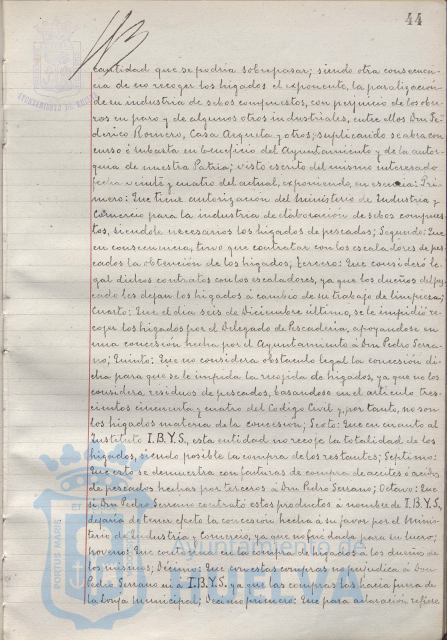 44
cantidad que se podria sobrepasar; siendo otra consecuen-
cia de no recoger los higados el exponente, la paralización
de su industria de sebos compuestos, con perjuicio de los obre-
ros en paro y de algunos otros industriales, entre ellos Don Fe-
derico Romero, Casa Azqueta y otros; suplicando se abra con-
curso ó subasta en beneficio del Ayuntamiento y de la autar-
quia de nuestra Patria; visto escrito del mismo interesado
fecha veinte y cuatro del actual, exponiendo, en esencia: Pri-
mero: Que tiene autorización del Ministerio de Industria y
Comercio para la industria de elaboración de sebos compues-
tos, siendole necesarios los higados de pescados; Segundo: Que
en consecuencia, tuvo que contratar con los escaladores de pes-
cados la obtención de los higados; Tercero: Que consideró le-
gal dichos contratos con los escaladores, ya que los dueños del pes-
cado les dejan los higados á cambio de su trabajo de limpieza;
Cuarto: Que el dia seis de Diciembre último, se le impidió re-
coger los higados por el Delegado de Pescaderia, apoyandose en
una concesión hecha por el Ayuntamiento á Don Pedro Serra-
no; Quinto: Que no considera obstaculo legal la concesión di-
cha para que se le impida la recojida de higados, ya que no los
considera residuos de pescados, basandose en el articulo tres-
cientos cincuenta y cuatro del Codigo Civil y, por tanto, no son
los higados materia de la concesion; Sexto: Que en cuanto al
Instituto I.B.Y.S., esta entidad no recoje la totalidad de los
higados, siendo posible la compra de los restantes; Septimo:
Que esto se demuestra con facturas de compra de aceites ó acidos
de pescados hechas por terceros á Don Pedro Serrano; Octavo: Que
si Don Pedro Serrano contrató estos productos á nombre de I.B.Y.S.,
dejaria de tener efecto la concesión hecha á su favor por el Minis-
terio de Industria y Comercio, ya que no fué dada para su lucro;
noveno: Que contrató la compra de higados á los dueños de
los mismos; Décimo: Que con estas compras no perjudica á Don
Pedro Serrano ni á I.B.Y.S. ya que las compras las hacia fuera de
la Lonja Municipal; Décimo primero: Que para aclaración refiere
Ayuntamiento de
HUELVA
PORTUS MARIS